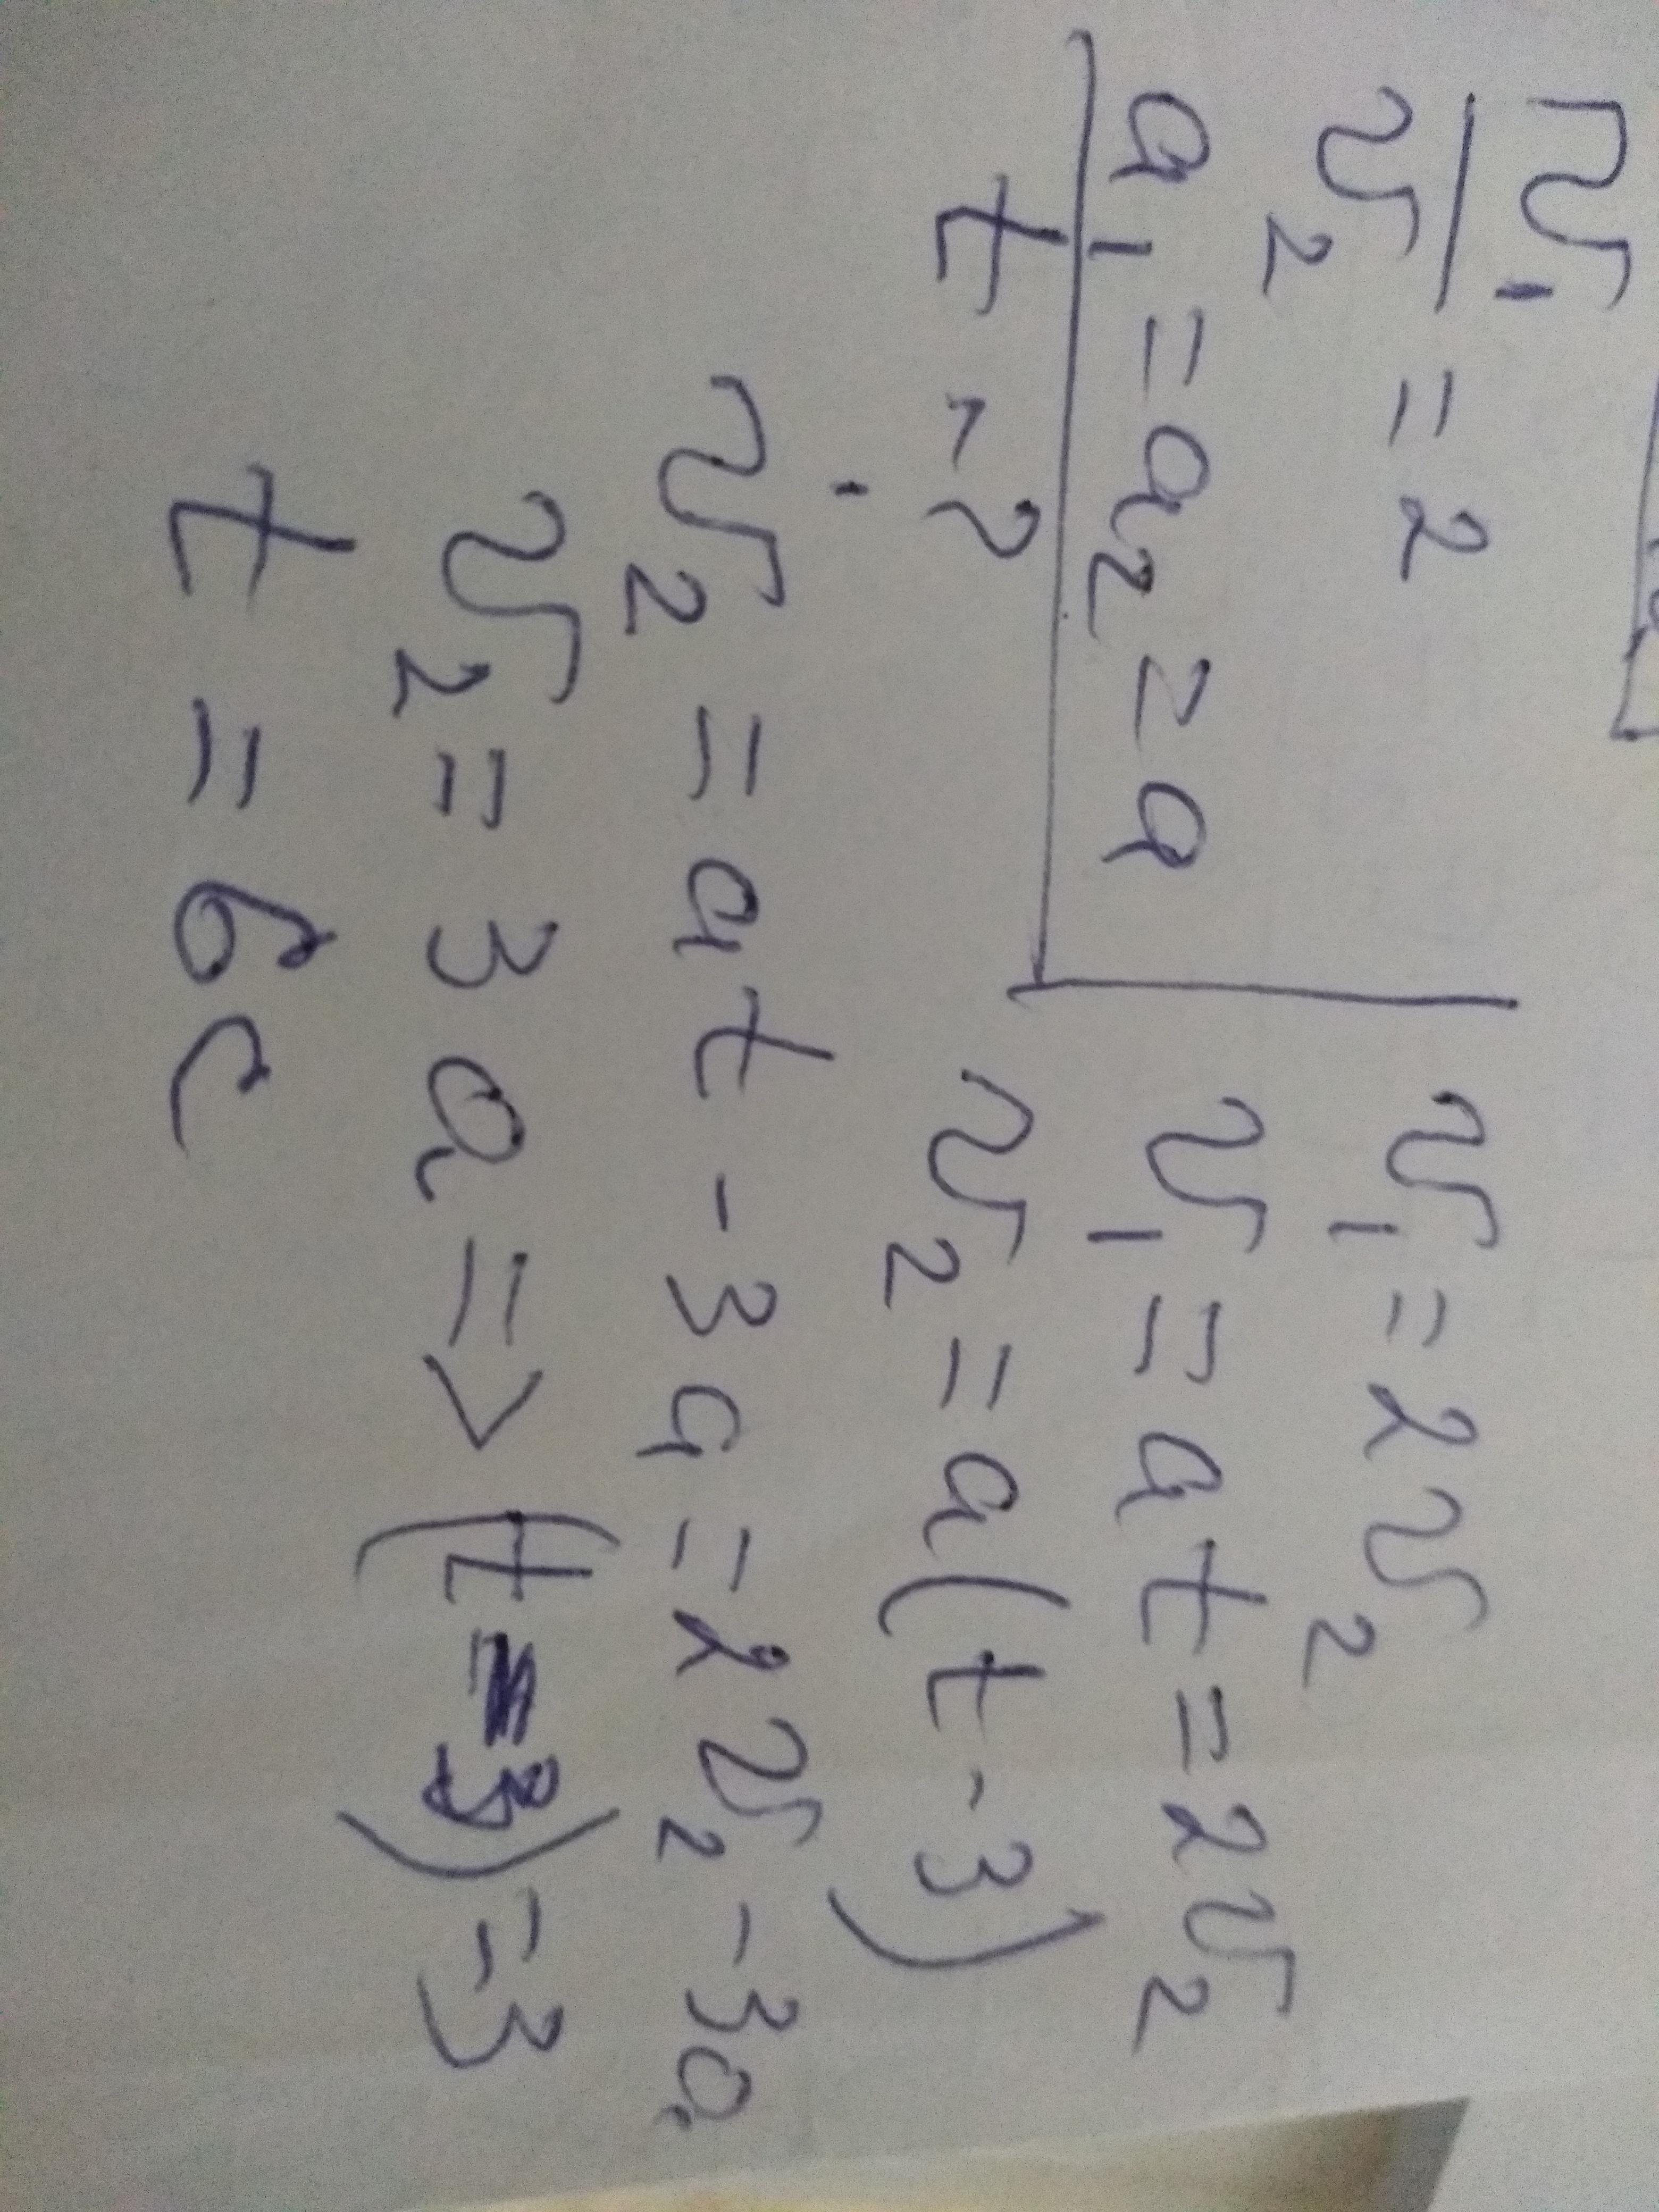 v₁/v₂ = 2
a₁ = a₂ = a
t - ?
v₁ = 2v₂
v₁ = at = 2v₂
v₂ = a(t-3)
v₂ = at - 3a = 2v₂ - 3a
v₂ = 3a => (t-3) = 3
t = 6c